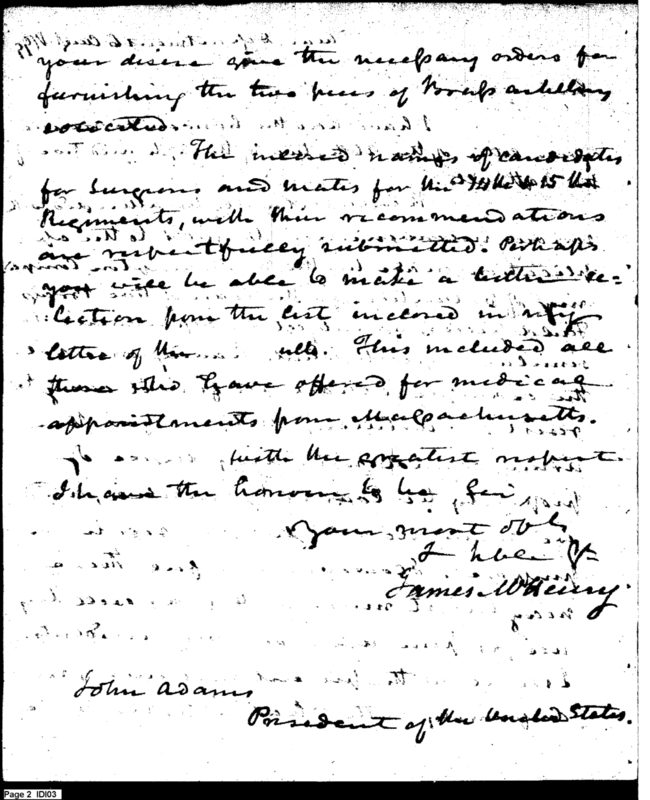 your desire give the necessary orders for
furnishing the two pieces of Brass artillery
solicited.
The inclosed names of candidates
for Surgeons and mates for the 14th & 15 the
Regiments, with their recommendations
are respectfully submitted. Perhaps
you will be able to make a better se-
lection from the list inclosed in my
letter of the ulto. This included all
those who have offered for medical
appointments from Massachusetts.
with the greatest respect
I have the honour to be Sir
Your most obt
& hble
James McHenry
John Adams
President of the United States.
Page 2 IDI03